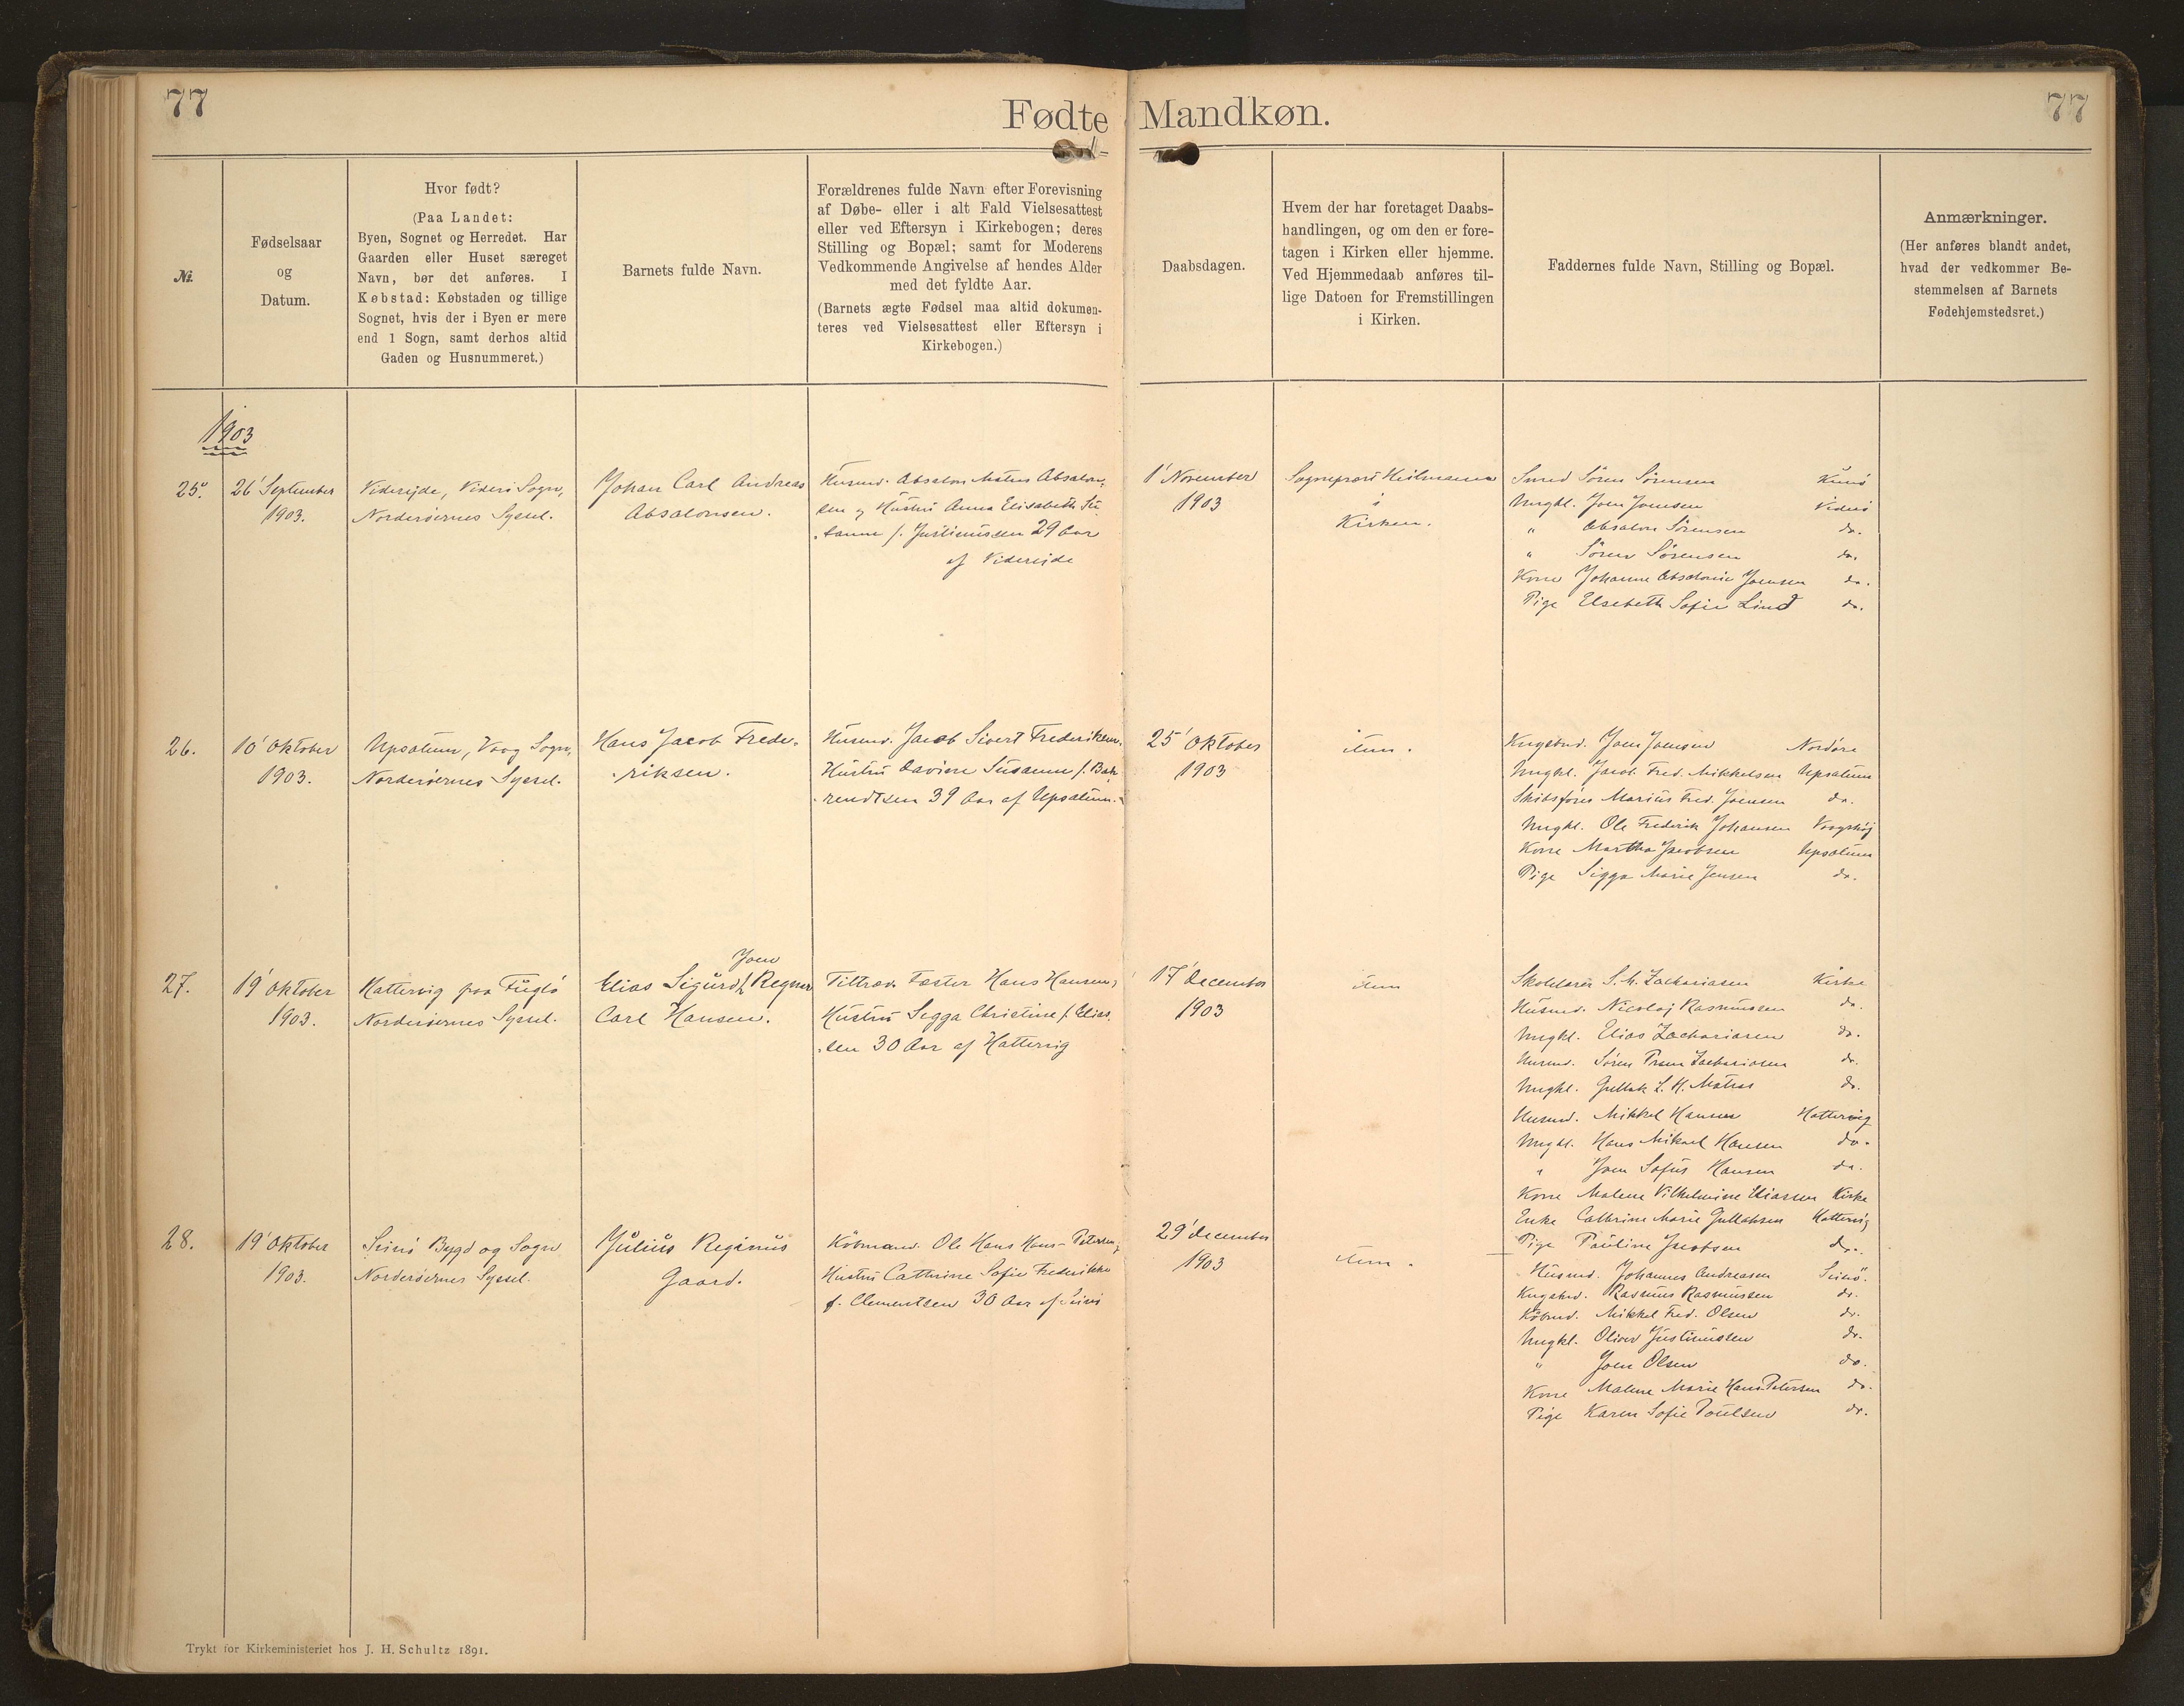 77
Fødte Mandkøn.
77
№.
Fødselsaar
og
Datum.
Hvor født?
(Paa Landet:
Byen, Sognet og Herredet. Har
Gaarden eller Huset særeget
Navn, bør det anføres. I
Købstad: Købstaden og tillige
Sognet, hvis der i Byen er mere
end 1 Sogn, samt derhos altid
Gaden og Husnummeret.)
Barnets fulde Navn.
Forældrenes fulde Navn efter Forevisning
af Døbe- eller i alt Fald Vielsesattest
eller ved Eftersyn i Kirkebogen; deres
Stilling og Bopæl; samt for Moderens
Vedkommende Angivelse af hendes Alder
med det fyldte Aar.
(Barnets ægte Fødsel maa altid dokumen-
teres ved Vielsesattest eller Eftersyn i
Kirkebogen.)
Daabsdagen.
Hvem der har foretaget Daabs-
handlingen, og om den er fore-
tagen i Kirken eller hjemme.
Ved Hjemmedaab anføres til-
lige Datoen for Fremstillingen
i Kirken.
Faddernes fulde Navn, Stilling og Bopæl.
Anmærkninger.
(Her anføres blandt andet,
hvad der vedkommer Be-
stemmelsen af Barnets
Fødehjemstedsret.)
1903
25.
26' September
1903.
Videreide, Viderø Sogn,
Norderøernes Syssel.
Johan Carl Andreas
Absalonsen.
Husmd. Absalon Matras Absalon-
sen og Hustru Anna Elisabeth Su-
sanne f. Justinussen 29 Aar
af Videreide
1' November
1903
Sognepræst Heilmann
i
Kirken.
Smed Sören Sörensen Kunø
Ungkl. Joen Joensen Viderø
" Absalon Sörensen do.
" Sören Sörensen do.
Kone Johanne Absalonie Joensen do.
Pige Elsebeth Sofie Lind do.
26.
10' Oktober
1903.
Upsalum, Vaag Sogn,
Norderøernes Syssel.
Hans Jacob Frede-
riksen.
Husmd. Jacob Sivert Frederiksen,
Hustru Daviene Susanne f. Bah-
rendtsen 39 Aar af Upsalum.
25' Oktober
1903
item.
Kngsbnd. Joen Joensen Nordøre
Ungkl. Jacob Fred. Mikkelsen Upsalum
Skibsfører Marius Fred. Joensen do.
Ungkl. Ole Frederik Johansen
Kone Martha Jacobsen Upsalum
Pige Sigga Marie Jensen do.
27.
19' Oktober
1903.
Hattervig paa Fuglø
Norderøernes Syssel.
Joen
Elias Sigurdh Regner
Carl Hansen.
Tiltræd. Fæster Hans Hansen,
Hustru Sigga Christine f. Elias-
sen 30 Aar af Hattervig
17' December
1903
item
Skolelærer S. M. Zachariasen Kirke
Husmd. Nicolaj Rasmussen do.
Ungkl. Elias Zachariasen do.
Husmd. Sören Zachariasen do.
Ungkl. Gullak L. H. Matras do.
Husmd. Mikkel Hansen Hattervig
Ungkl. Hans Mikael Hansen do.
" Joen Sofus Hansen do.
Kone Malene Vilhelmine Eliassen Kirke
Enke Cathrine Marie Gullaksen Hattervig
Pige Pauline Jacobsen do.
28.
19' Oktober
1903.
Svinø Bygd og Sogn
Norderøernes Syssel.
Julius Reginus
Gaard.
Købmand. Ole Hans Hans-Petersen,
Hustru Cathrine Sofie Frederikke
f. Clementsen 30 Aar af Svinø
29' December
1903
item.
Husmd. Johannes Andreasen Svinø.
Kngsbnd. Rasmus Rasmussen do.
Købmd. Mikkel Fred. Olsen do.
Ungkl. Oliver Justinussen do.
" Joen Olsen do.
Kone Malene Marie Hans Petersen do.
Pige Karen Sofie Poulsen do.
Trykt for Kirkeministeriet hos J. H. Schultz 1891.